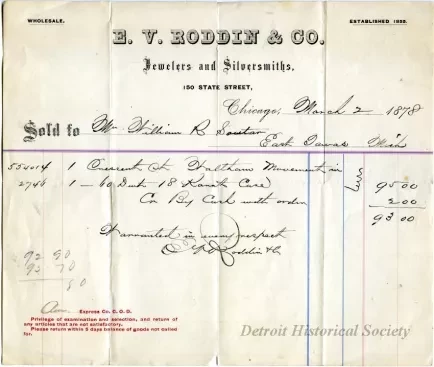 WHOLESALE.
ESTABLISHED 1855.
E. V. RODDIN & CO.
Jewelers and Silversmiths,
150 STATE STREET,
Chicago, March 2 1878
Sold to Mr William R Soutar
East Tawas Mich
554014 1 Crescent St Waltham Movement in
2746 1 - 60 Dwt 18 Karat Case 95 00
Cr By Cash with order 2 00
93 00
Warranted in every respect
E V Roddin & Co
92 90
Am. Express Co. C. O. D.
Privilege of examination and selection, and return of
any articles that are not satisfactory.
Please return within 5 days balance of goods not called
for.
Detroit Historical Society